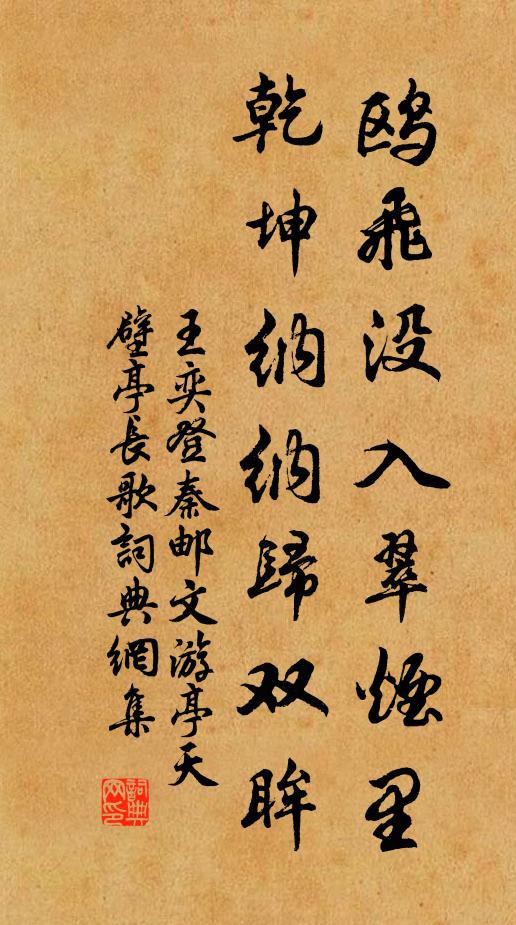 鸥飛没入翠煙里
乾坤纳纳歸双眸
王奕登秦邮文游亭天
壁亭長歌詞典網集
詞典
网印